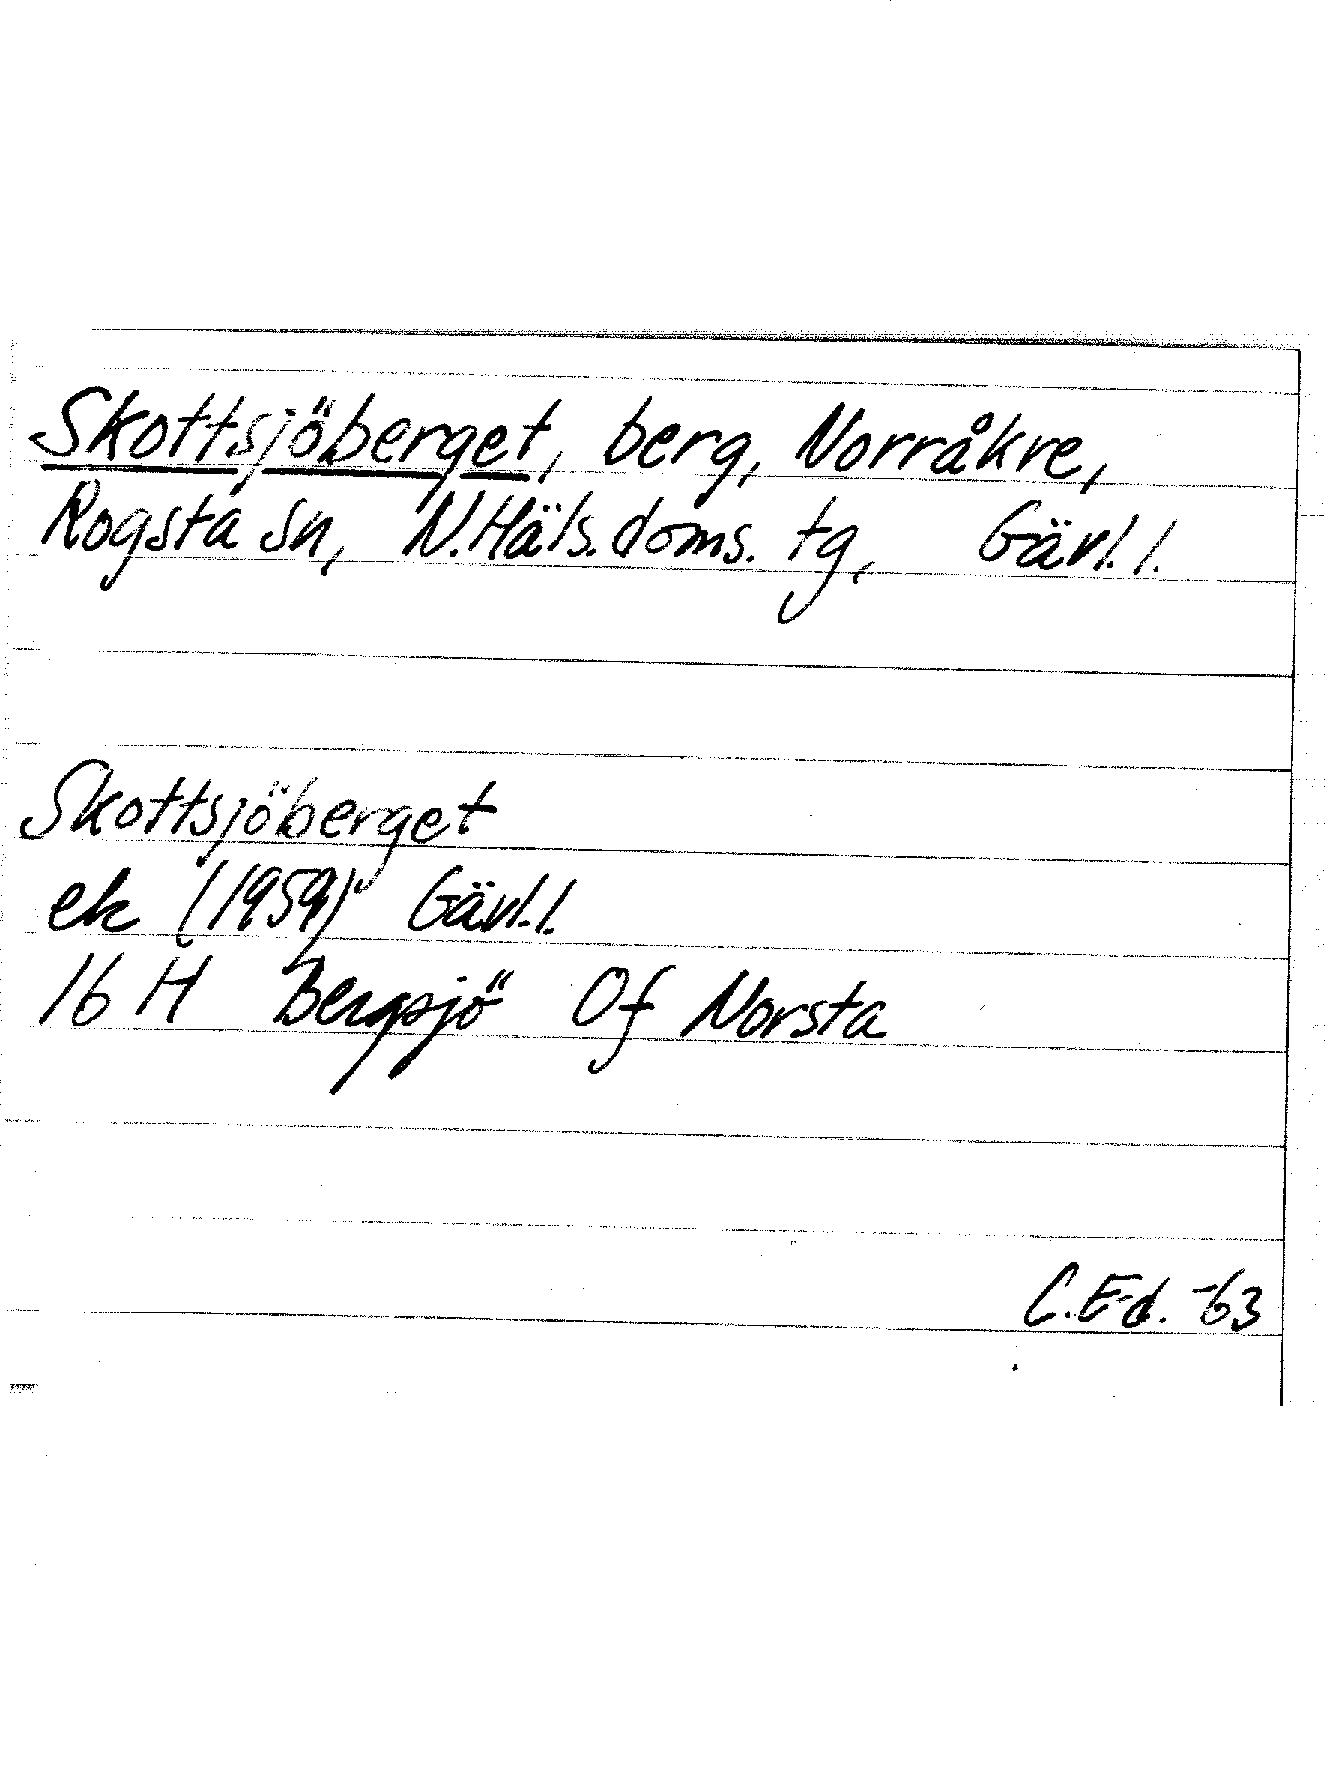 Skottsjöberget, berg, Norråkre,
Rogsta sn, N.Häls.doms. tg, Gävl.l.
Skottsjöberget
ek (1959) Gävl.l.
16 H Bergsjö Of Norsta
C.E-d. -63